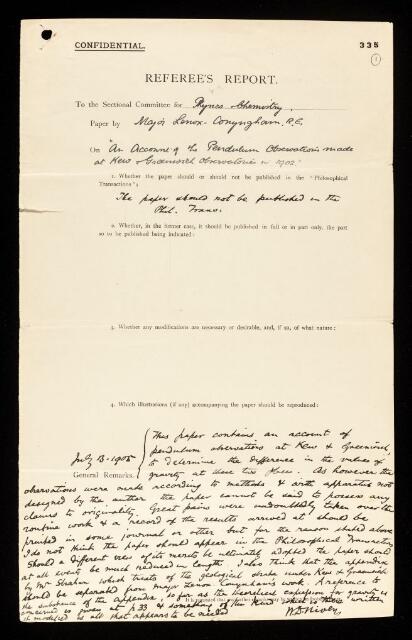 CONFIDENTIAL.
335
1
REFEREE'S REPORT.
To the Sectional Committee for Physics & Chemistry.
Paper by Major Lenox-Conyngham, R.E.
On "An Account of the Pendulum Observations made
at Kew & Greenwich Observatories in 1902."
1. Whether the paper should or should not be published in the "Philosophical
Transactions":
The paper should not be published in the
Phil. Trans.
2. Whether, in the former case, it should be published in full or in part only, the part
so to be published being indicated:
3. Whether any modifications are necessary or desirable, and, if so, of what nature:
4. Which illustrations (if any) accompanying the paper should be reproduced:
July 13 - 1905
General Remarks.
This paper contains an account of
pendulum observations at Kew & Greenwich
to determine the difference in the values of
gravity at these two places. As however the
observations were made according to methods & with apparatus not
designed by the author the paper cannot be said to possess any
claims to originality. Great pains were undoubtedly taken over the
routine work & a record of the results arrived at should be
printed in some journal or other but for the reason stated above
I do not think the paper should appear in the Philosophical Transactions
Should a different view of its merits be ultimately adopted the paper should
at all events be much reduced in length. I also think that the appendix
by Mr Strahan which treats of the geological strata under Kew & Greenwich
should be separated from Major Lenox Conyngham's work. A reference to
the substance of the appendix, so far as the theoretical expression for gravity is
concerned as given at p 33 & something of the kind written
if modified is all that appears to be needed
W D Niven